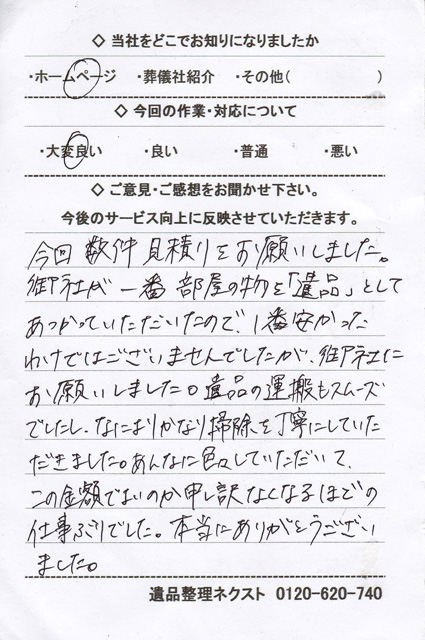 ◇ 当社をどこでお知りになりましたか
・ホームページ ・葬儀社紹介 ・その他( )
◇ 今回の作業・対応について
・大変良い ・良い ・普通 ・悪い
◇ ご意見・ご感想をお聞かせ下さい。
今後のサービス向上に反映させていただきます。
今回 数件 見積りをお願いしました。
御社が 一番 部屋の物を「遺品」として
あつかっていただいたので、1番安かった
わけではございませんでしたが、御社に
お願いしました。遺品の運搬もスムーズ
でしたし、なによりかなり掃除を丁寧にしていた
だきました。あんなに色々していただいて、
この金額でよいのか申し訳なくなるほどの
仕事ぶりでした。本当にありがとうござい
ました。
遺品整理ネクスト 0120-620-740